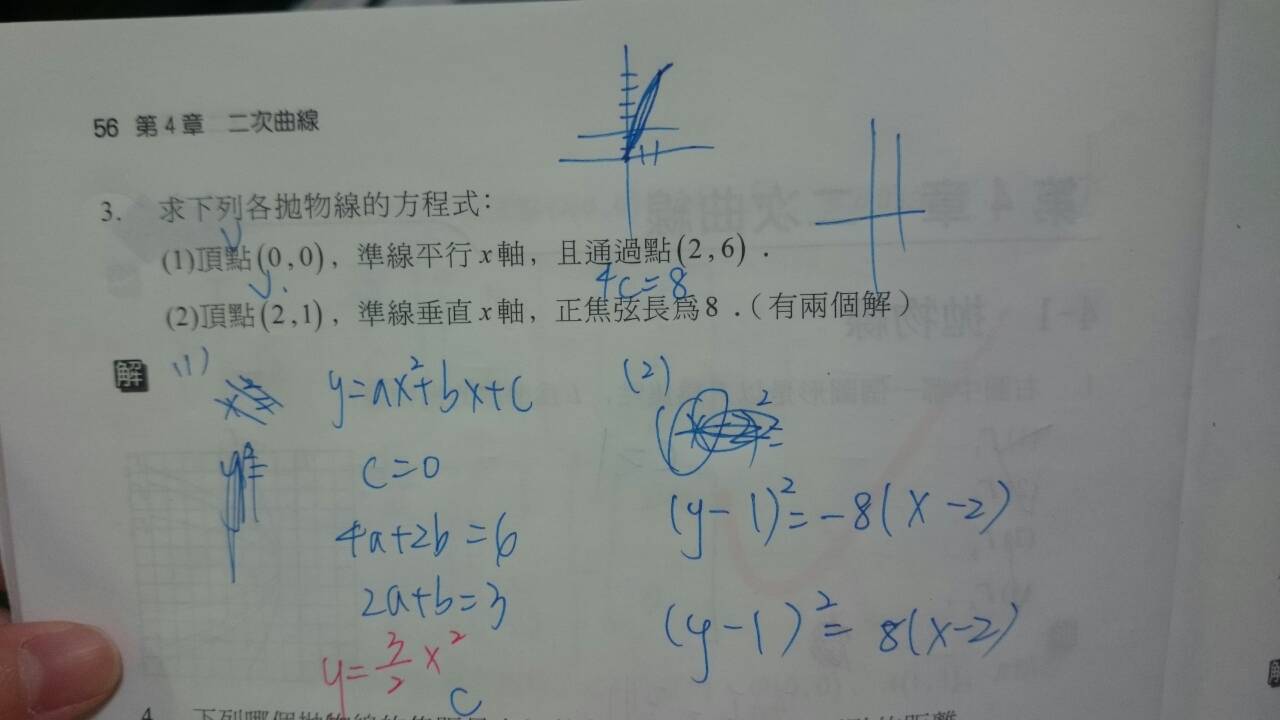 56 第4章 二次曲線
3. 求下列各拋物線的方程式:
(1)頂點(0,0),準線平行x軸,且通過點(2,6).
4c=8
(2)頂點(2,1),準線垂直x軸,正焦弦長為8.(有兩個解)
解
(1)
y=ax²+bx+c
c=0
4a+2b=6
2a+b=3
y=3/2 x²
C
(2)
(y-1)²=-8(x-2)
(y-1)²=8(x-2)